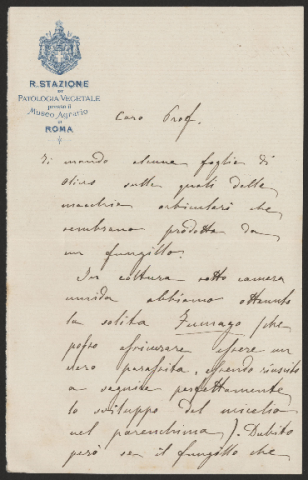 R. STAZIONE
DI
PATOLOGIA VEGETALE
presso il
Museo Agrario
DI
ROMA
Caro Prof.
Ti mando alcune foglie di
olivo sulle quali delle
macchie orbiculari che
sembrano prodotte da
un funghetto.
In coltura sotto camera
umida abbiamo ottenuto
la solita Fumago (che
posso assicurare essere un
vero parassita, essendo riuscito
a seguire perfettamente
lo sviluppo del micelio
nel parenchima). Dubito
però se il funghetto che